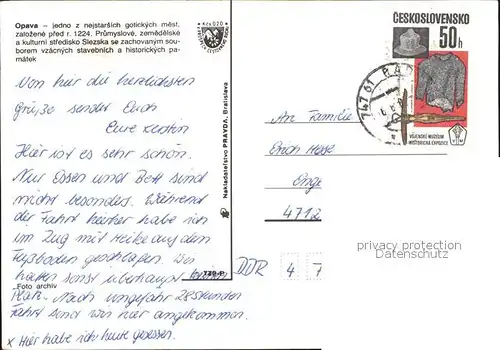 Opava – jedno z nejstarších gotických měst,
založené před r. 1224. Průmyslové, zemědělské
a kulturní středisko Slezska se zachovaným sou-
borem vzácných stavebních a historických pa-
mátek
Kčs 0,20
Von hier die herzlichsten
Grüße sendet Euch
Eure
Hier ist es sehr schön.
Nur Essen und Bett sind
nicht besonders. Während
der Fahrt hierher habe ich
im Zug mit Heike auf dem
Fußboden geschlafen. Wir
hatten sonst überhaupt keinen
Platz. Nach ungefähr 28 Stunden
Fahrt sind wir hier angekommen.
x Hier habe ich heute gesessen.
Foto archiv
Nakladatelstvo PRAVDA, Bratislava
ČESKOSLOVENSKO
50 h
VOJENSKÉ MUZEUM
HISTORICKÁ EXPOZICE
747 61
An Familie
Erich Hesse
Enge
4712
DDR 4 7
privacy protection
Datenschutz